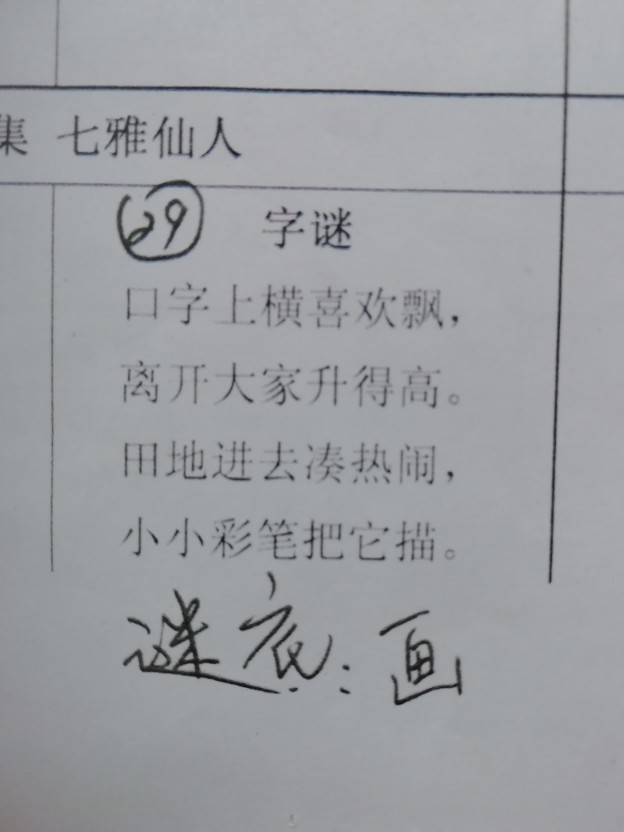 集 七雅仙人
29 字谜
口字上横喜欢飘,
离开大家升得高。
田地进去凑热闹,
小小彩笔把它描。
谜底:画